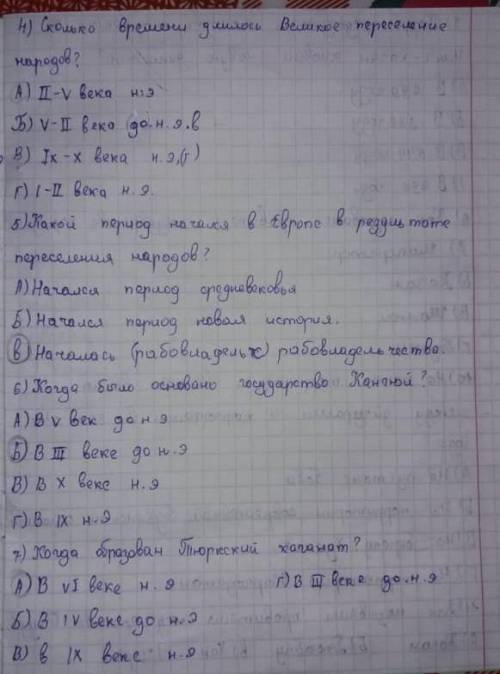 4) Сколько времени длилось Великое переселение
народов?
А) II-V века н.э
Б) V-II века до.н.э,в
В) IX-X века н.э,(г)
Г) I-II века н.э.
5) Какой период начался в Европе в рездультате
переселения народов?
А) Начался период средневековья
Б) Начался период новая история.
В) Началось (рабовладельч) рабовладельчество.
6) Когда было основано государство Кангюй?
А) В V век до н.э
Б) В III веке до н.э
В) В X веке н.э
Г) В IX н.э
7) Когда образован Тюркский каганат?
А) В VI веке н.э Г) В III веке до.н.э
Б) В IV веке до н.э
В) в IX веке н.э